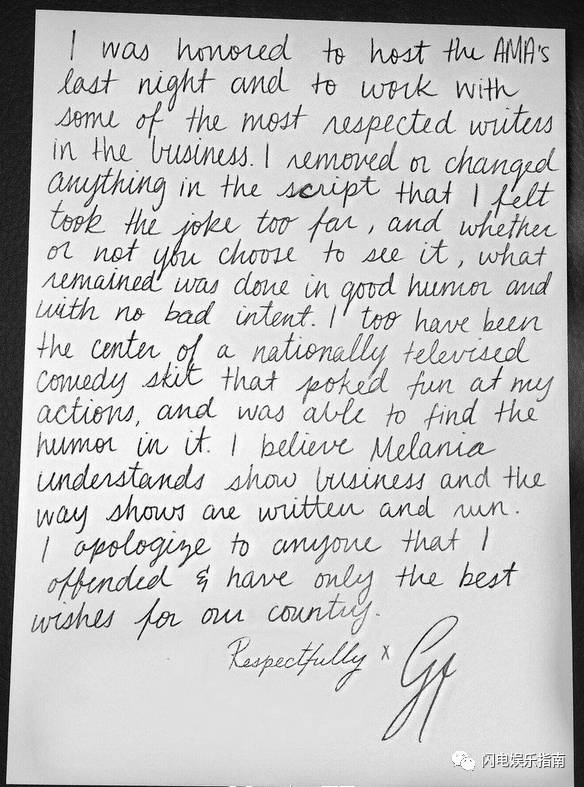 I was honored to host the AMA's
last night and to work with
some of the most respected writers
in the business. I removed or changed
anything in the script that I felt
took the joke too far, and whether
or not you choose to see it, what
remained was done in good humor and
with no bad intent. I too have been
the center of a nationally televised
comedy skit that poked fun at my
actions, and was able to find the
humor in it. I believe Melania
understands show business and the
way shows are written and run.
I apologize to anyone that I
offended & have only the best
wishes for our country.
Respectfully x
闪电娱乐指南